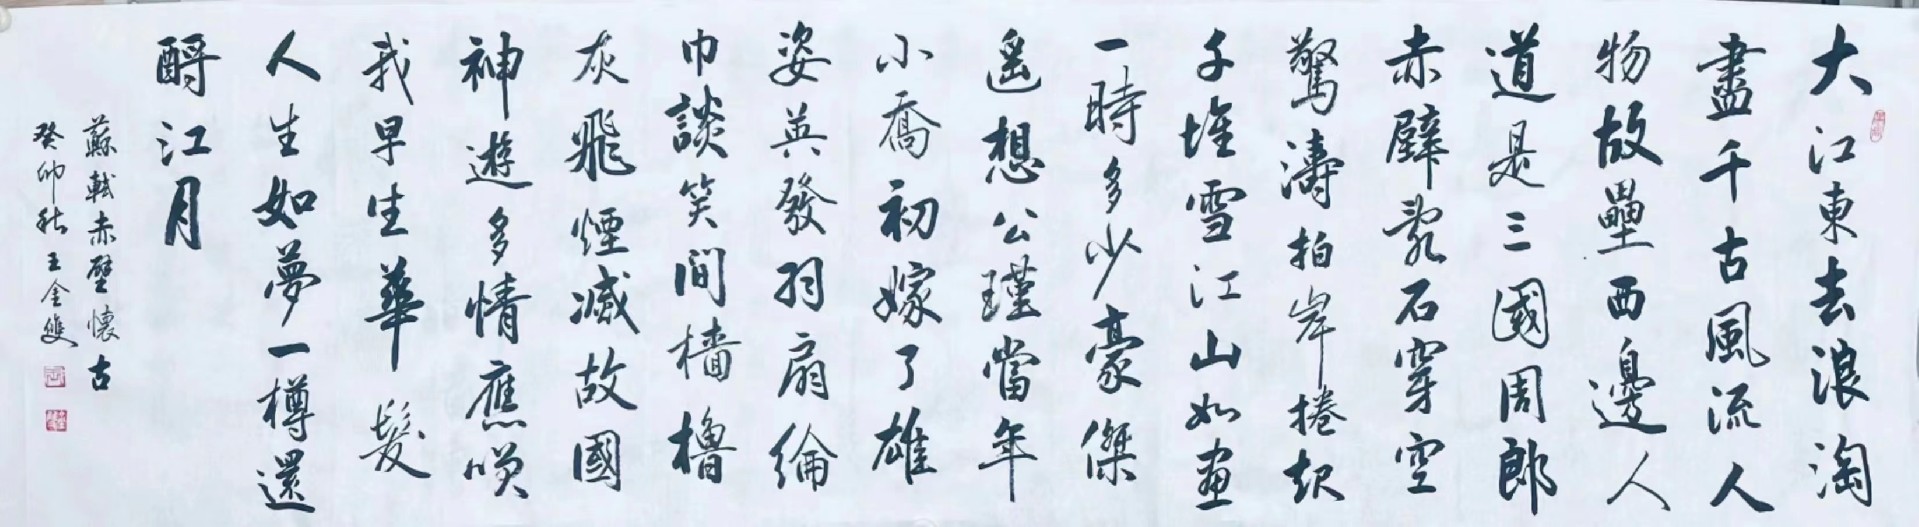 大江東去浪淘
盡千古風流人
物故壘西邊人
道是三國周郎
赤壁亂石穿空
驚濤拍岸捲起
千堆雪江山如畫
一時多少豪傑
遙想公瑾當年
小喬初嫁了雄
姿英發羽扇綸
巾談笑間檣櫓
灰飛煙滅故國
神遊多情應咲
我早生華髮
人生如夢一樽還
酹江月
蘇軾赤壁懷古
癸卯秋王金雙